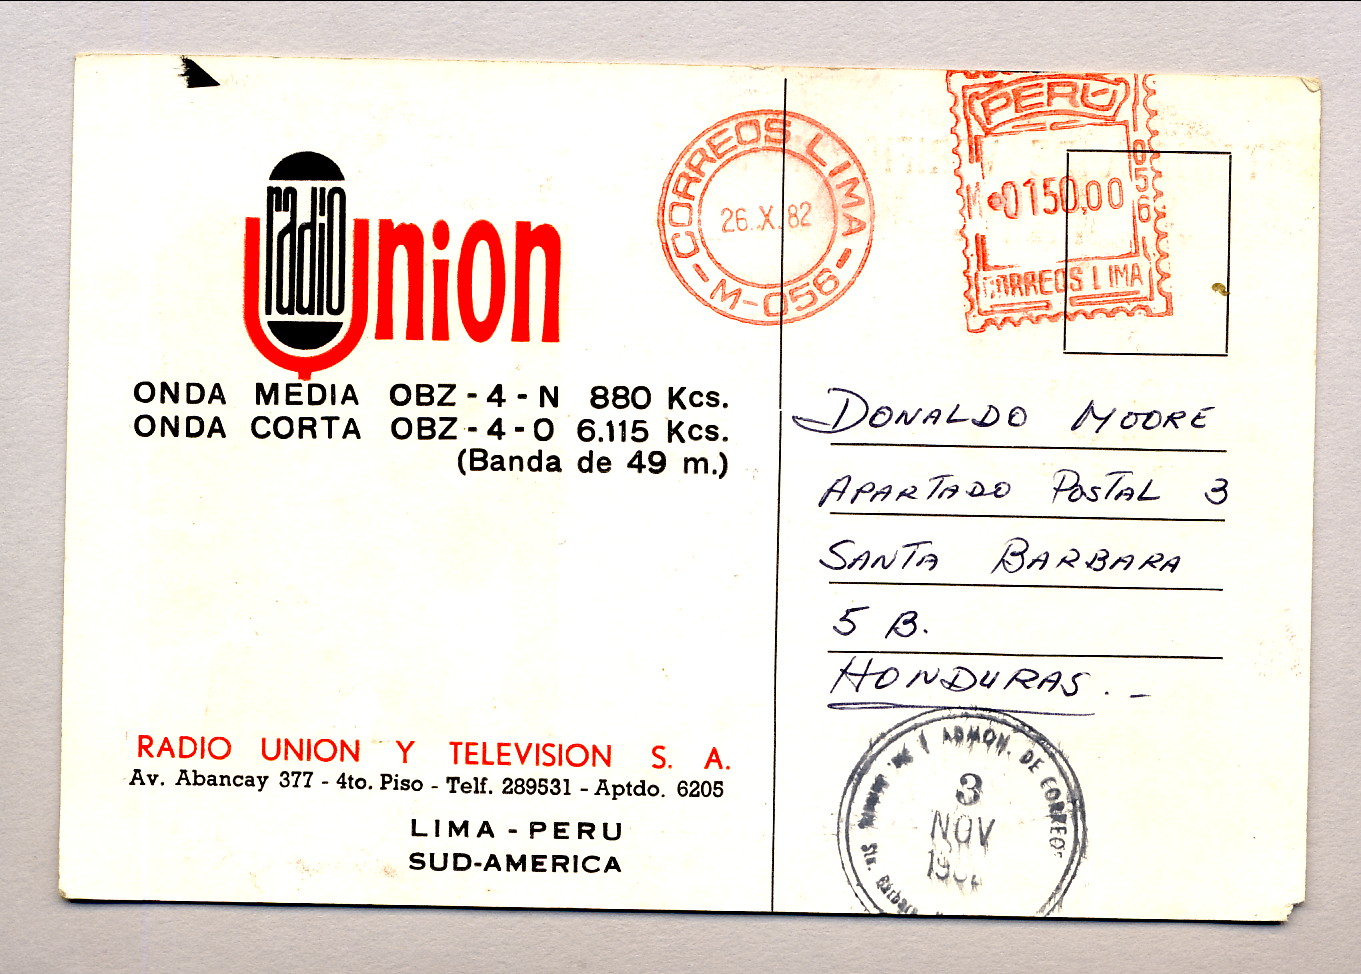 radio Union
ONDA MEDIA OBZ-4-N 880 Kcs.
ONDA CORTA OBZ-4-O 6.115 Kcs.
(Banda de 49 m.)
RADIO UNION Y TELEVISION S. A.
Av. Abancay 377 - 4to. Piso - Telf. 289531 - Aptdo. 6205
LIMA - PERU
SUD-AMERICA
CORREOS LIMA
26.X.82
M-056
PERU
0150,00
056
CORREOS LIMA
DONALDO MOORE
APARTADO POSTAL 3
SANTA BARBARA
S B.
HONDURAS.-
ADMON. DE CORREOS
3
NOV
Sta. Barbara